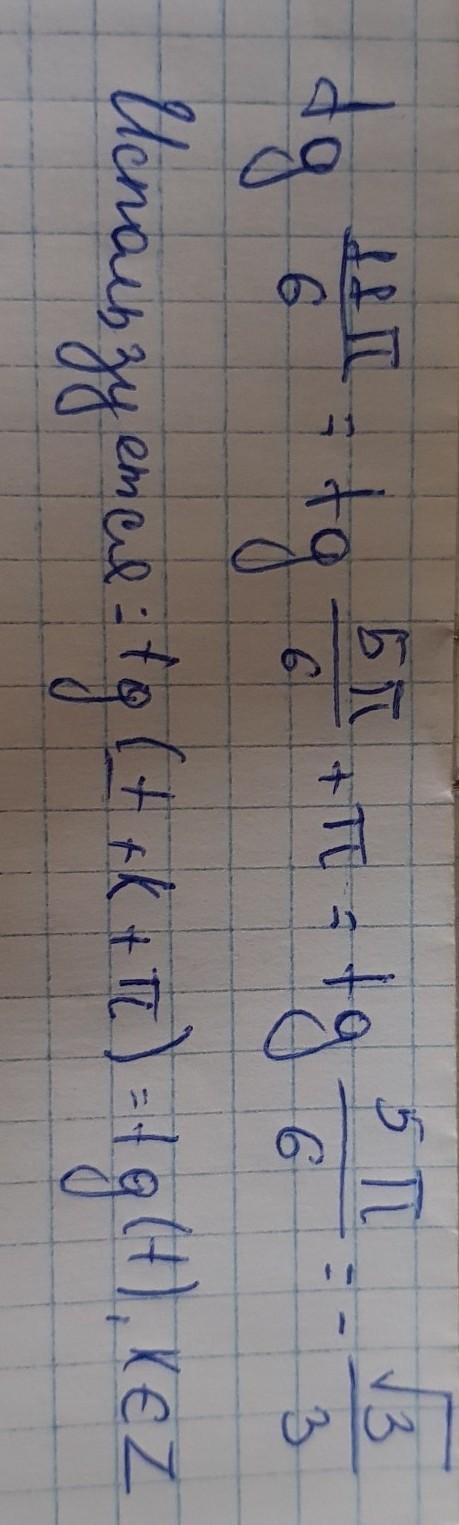 tg 11π/6 = tg 5π/6 + π = tg 5π/6 = - √3/3
Используется: tg(t + k + π) = tg(t), k ∈ Z